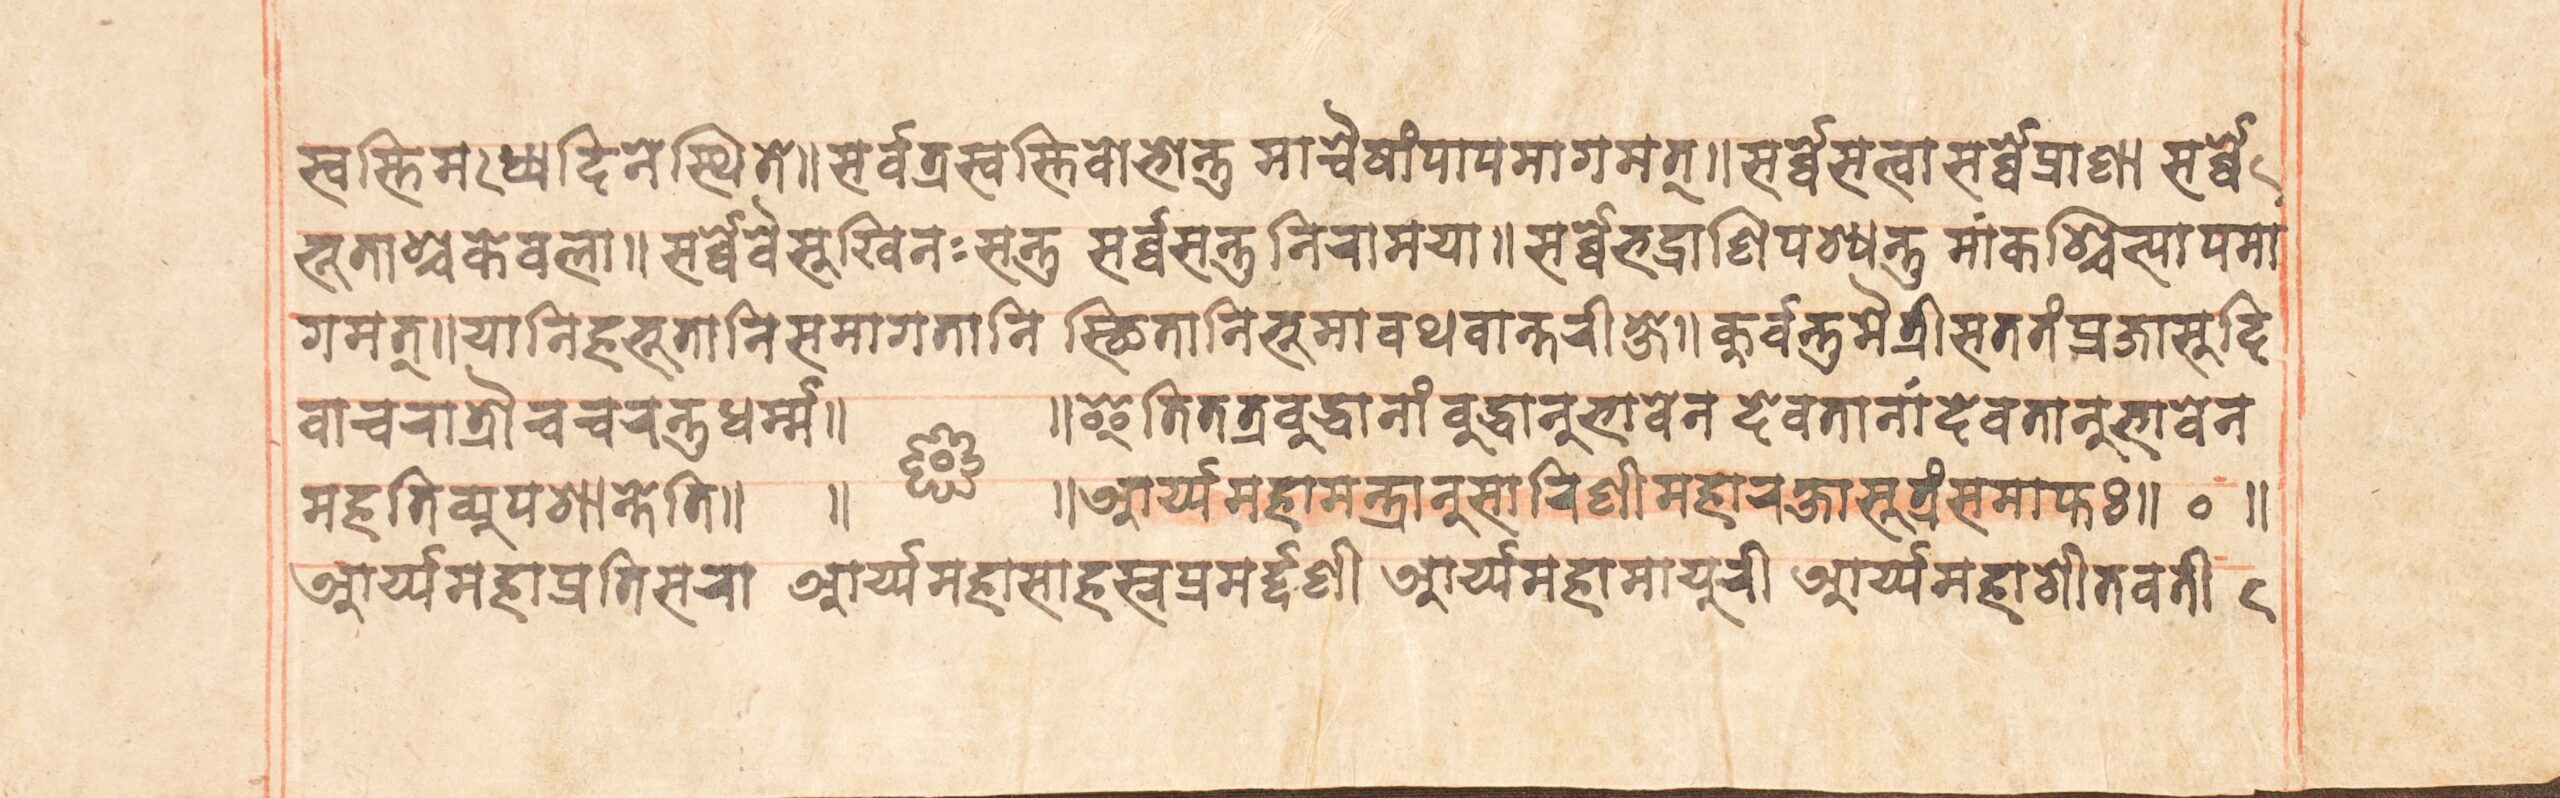 स्वस्तिमध्यदिनेस्थिते॥सर्वत्रस्वस्तिवोभोन्तु माचैषांपापमागमत्॥सर्ब्बेसत्वासर्ब्बेप्राणा सर्ब्बे
भूताश्चकेवला॥सर्ब्बेवैसुखिनःसन्तु सर्ब्बसन्तुनिरामया॥सर्ब्बेभद्राणिपश्यन्तु मांकश्चित्पापमा
गमत्॥यानिहभूतानिसमागतानि स्थितानिभूमावथवान्तरीक्षे॥कुर्वन्तुमैत्रीसततंप्रजासुदि
वाचरात्रौचचरन्तुधर्म्म॥ ॥इतितत्रबुद्धानांबुद्धानुभावेन देवतानांदेवतानुभावेन
महतिव्युपशान्तेति॥ ॥ ॥आर्य्यमहामन्त्रानुसारिणीमहारक्षासूत्रंसमाप्तः॥ ० ॥
आर्य्यमहाप्रतिसरा आर्य्यमहासाहस्रप्रमर्द्दणी आर्य्यमहामायुरी आर्य्यमहाशीतवती